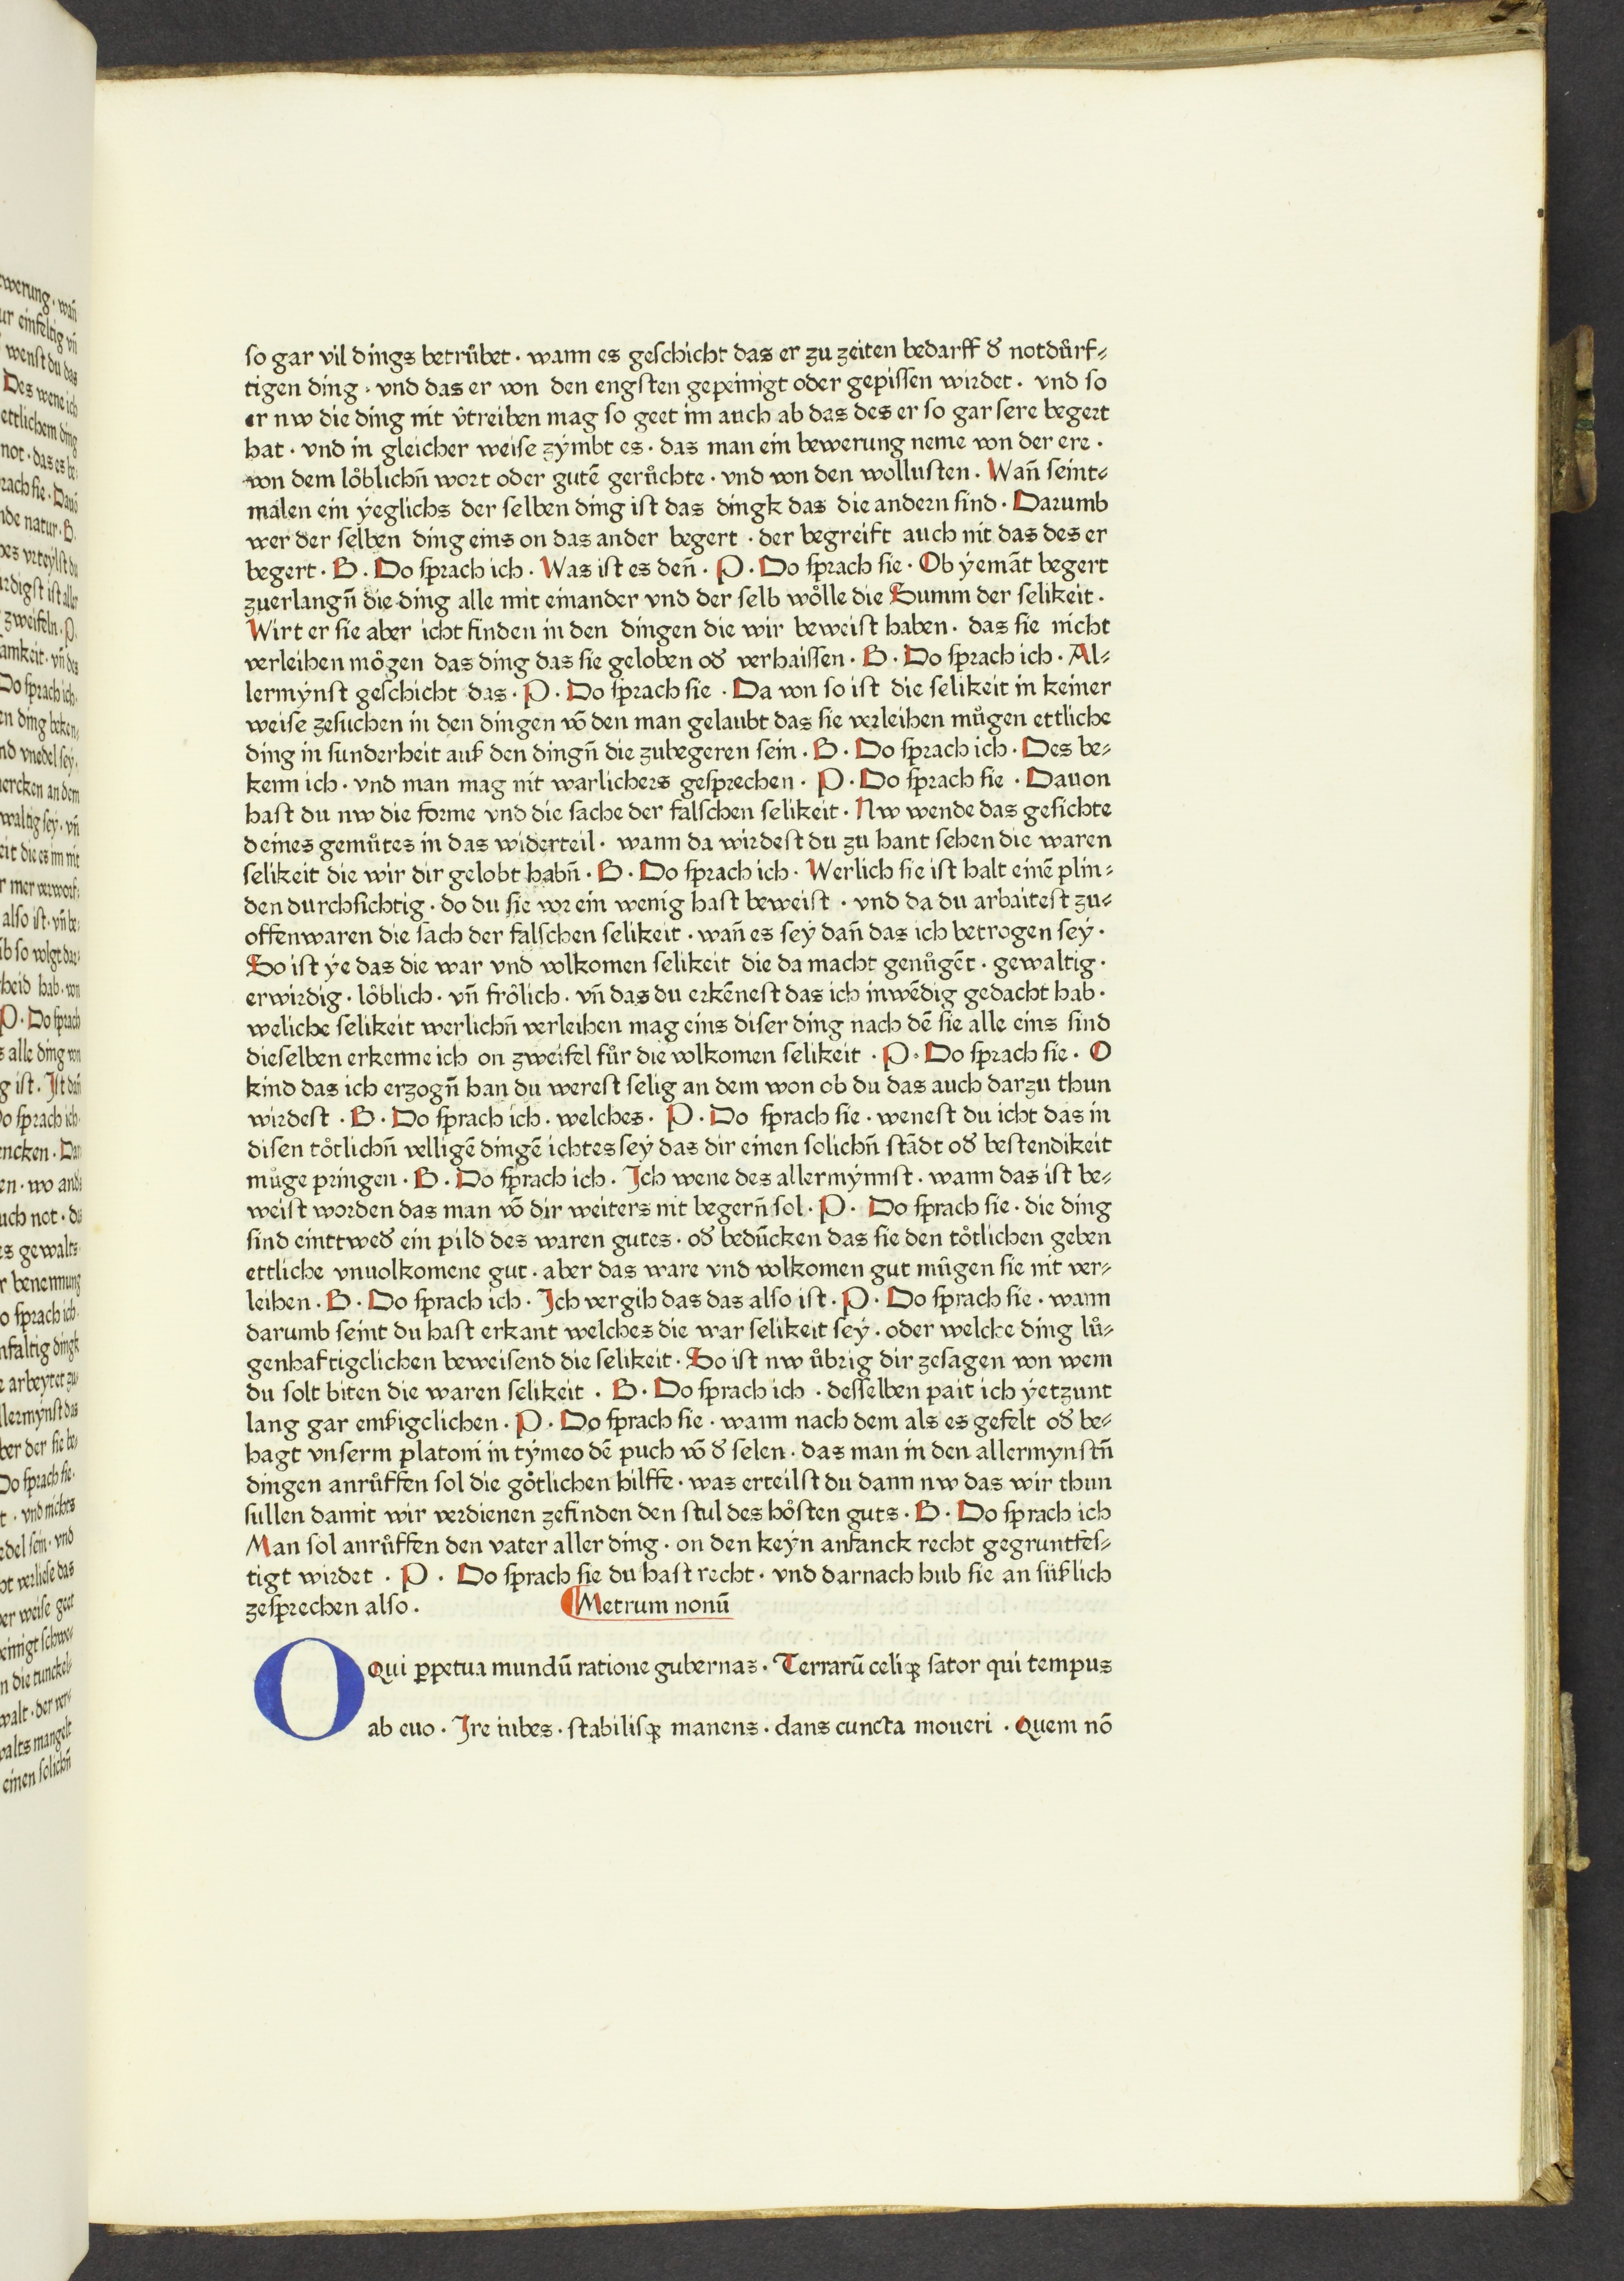 so gar vil dings betrůbet · wann es geschicht das er zu zeiten bedarff dˀ notdůrf⸗
tigen ding · vnd das er von den engsten gepeinigt oder gepissen wirdet · vnd so
er nw die ding nit v̂treiben mag so geet im auch ab das des er so gar sere begert
hat · vnd in gleicher weise zýmbt es · das man ein bewerung neme von der ere ·
von dem lo̊blichn̄ wort oder gutē gerůchte · vnd von den wollusten · Wan̄ seint⸗
malen ein ýeglichs der selben ding ist das dingk das die andern sind · Darumb
wer der selben ding eins on das ander begert · der begreift auch nit das des er
begert · B · Do sprach ich · Was ist es den̄ · P · Do sprach sie · Ob ýemāt begert
zuerlangn̄ die ding alle mit einander vnd der selb wo̊lle die Summ der selikeit ·
Wirt er sie aber icht finden in den dingen die wir beweist haben · das sie nicht
verleihen mo̊gen das ding das sie geloben odˀ verhaissen · B · Do sprach ich · Al⸗
lermýnst geschicht das · P · Do sprach sie · Da von so ist die selikeit in keiner
weise zesuchen in den dingen vō den man gelaubt das sie verleihen můgen ettliche
ding in sunderheit auß den dingn̄ die zubegeren sein · B · Do sprach ich · Des be⸗
kenn ich · vnd man mag nit warlichers gesprechen · P · Do sprach sie · Dauon
hast du nw die forme vnd die sache der falschen selikeit · Nw wende das gesichte
deines gemůtes in das widerteil · wann da wirdest du zu hant sehen die waren
selikeit die wir dir gelobt habn̄ · B · Do sprach ich · Werlich sie ist halt einē plin⸗
den durchsichtig · do du sie vor ein wenig hast beweist · vnd da du arbaitest zu⸗
offenwaren die sach der falschen selikeit · wan̄ es seý dan̄ das ich betrogen seý ·
So ist ýe das die war vnd volkomen selikeit die da macht genůgēt · gewaltig ·
erwirdig · lo̊blich · vn̄ fro̊lich · vn̄ das du erkēnest das ich inwēdig gedacht hab ·
weliche selikeit werlichn̄ verleihen mag eins diser ding nach dē sie alle eins sind
dieselben erkenne ich on zweifel fůr die volkomen selikeit · P · Do sprach sie · O
kind das ich erzogn̄ han du werest selig an dem won ob du das auch darzu thun
wirdest · B · Do sprach ich · welches · P · Do sprach sie · wenest du icht das in
disen to̊tlichn̄ velligē dingē ichtes seý das dir einen solichn̄ stādt odˀ bestendikeit
můge pringen · B · Do sprach ich · Ich wene des allermýnnst · wann das ist be⸗
weist worden das man vō dir weiters nit begern̄ sol · P · Do sprach sie · die ding
sind einttwedˀ ein pild des waren gutes · odˀ bedůcken das sie den to̊tlichen geben
ettliche vnuolkomene gut · aber das ware vnd volkomen gut můgen sie nit ver⸗
leihen · B · Do sprach ich · Ich vergih das das also ist · P · Do sprach sie · wann
darumb seint du hast erkant welches die war selikeit seý · oder welche ding lů⸗
genhaftigclichen beweisend die selikeit · So ist nw ůbrig dir zesagen von wem
du solt biten die waren selikeit · B · Do sprach ich · desselben pait ich ýetzunt
lang gar emßigclichen · P · Do sprach sie · wann nach dem als es gefelt odˀ be⸗
hagt vnserm platoni in týmeo dē puch vō dˀ selen · das man in den allermynstn̄
dingen anrůffen sol die go̊tlichen hilffe · was erteilst du dann nw das wir thun
sullen damit wir verdienen zefinden den stul des ho̊sten guts · B · Do sprach ich
Man sol anrůffen den vater aller ding · on den keýn anfanck recht gegruntfes⸗
tigt wirdet · P · Do sprach sie du hast recht · vnd darnach hub sie an sůßlich
zesprechen also · ¶Metrum nonū
O Qui ꝑpetua mundū ratione gubernas · Terrarū celiqꝫ sator qui tempus
ab euo · Ire iubes · stabilisqꝫ manens · dans cuncta moueri · Quem nō